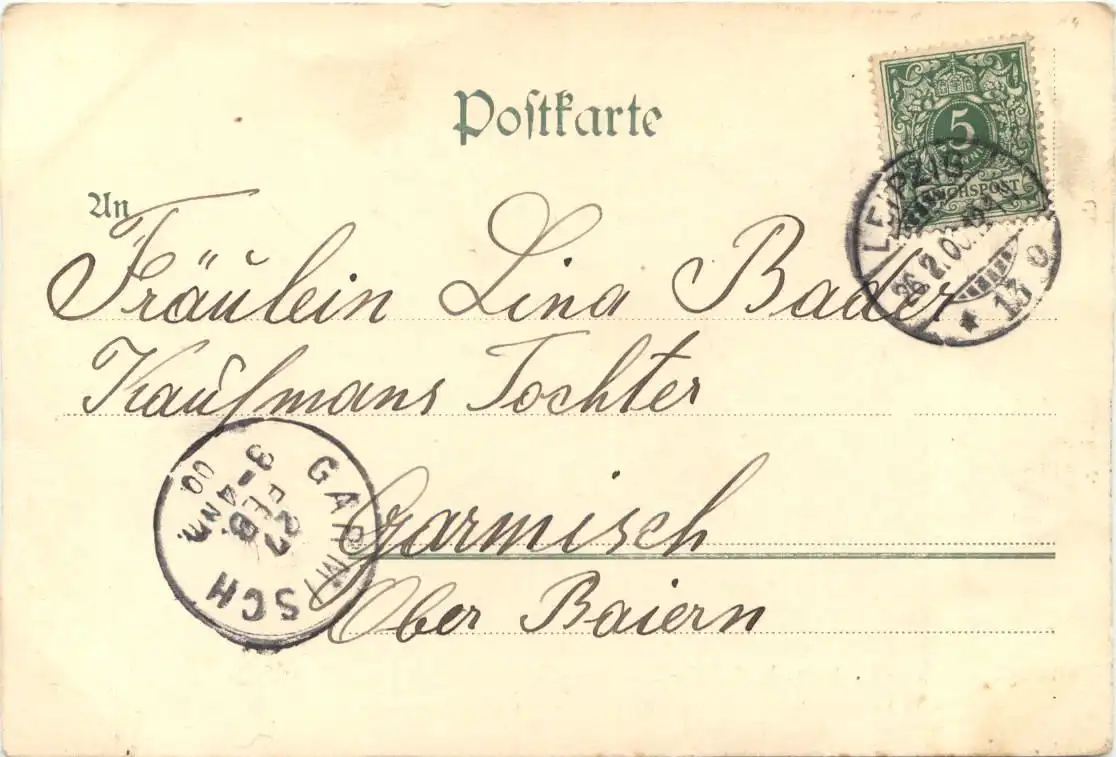 Postkarte
5
REICHSPOST
LEIPZIG
26.2.00.
* 13 o
An
Fräulein Lina Bader
Kaufmans Tochter
GARMISCH
27 FEB
3-4 NM
00
Garmisch
Ober Baiern